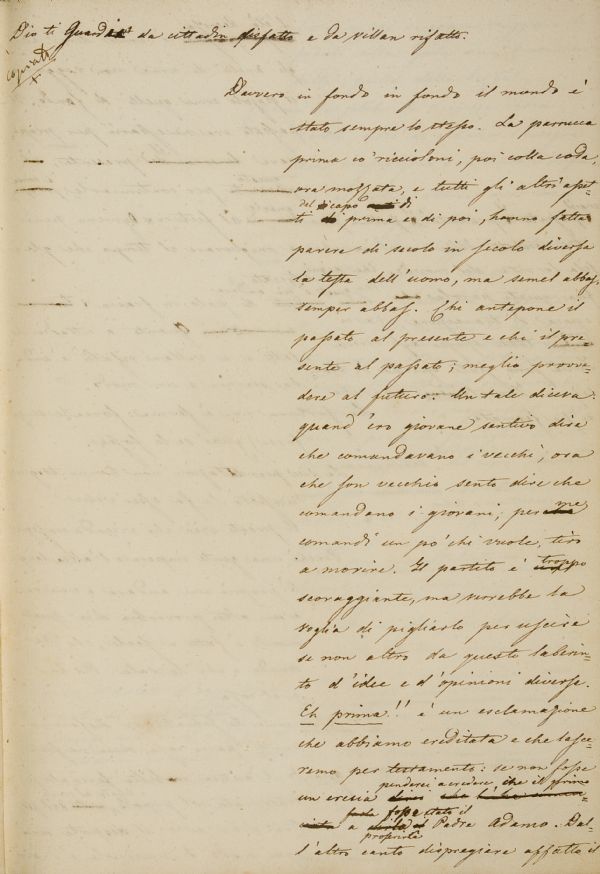 Dio ti Guardi da cittadin disfatto e da villan rifatto.
copiato
Davvero in fondo in fondo il mondo è
stato sempre lo stesso. La parrucca
prima co' riccioloni, poi colla coda,
ora mozzata, e tutti gli altri aspet-
del capo di
ti di prima e di poi, hanno fatto
parere di secolo in secolo diversa
la testa dell'uomo, ma semel abbas,
semper abbas. Chi antepone il
passato al presente e chi il pre=
sente al passato; meglio provve=
dere al futuro. Un tale diceva:
quand'ero giovane sentivo dire
che comandavano i vecchi, ora
che son vecchio sento dire che
comandano i giovani; per me
comandi un po' chi vuole, tiro
a morire. Il partito è troppo
scoraggiante, ma verrebbe la
voglia di pigliarlo per uscire
se non altro da questo laberin-
to d'idee e d'opinioni diverse.
Eh prima!! è un esclamazione
che abbiamo ereditata e che lasce-
remo per testamento: se non fosse
penderei a credere che il primo
un eresia
fosse stato il
a Padre Adamo. Dal-
proferirla
l'altro canto dispregiare affatto il